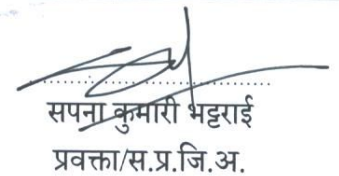 सपना कुमारी भट्टराई
प्रवक्ता/स.प्र.जि.अ.